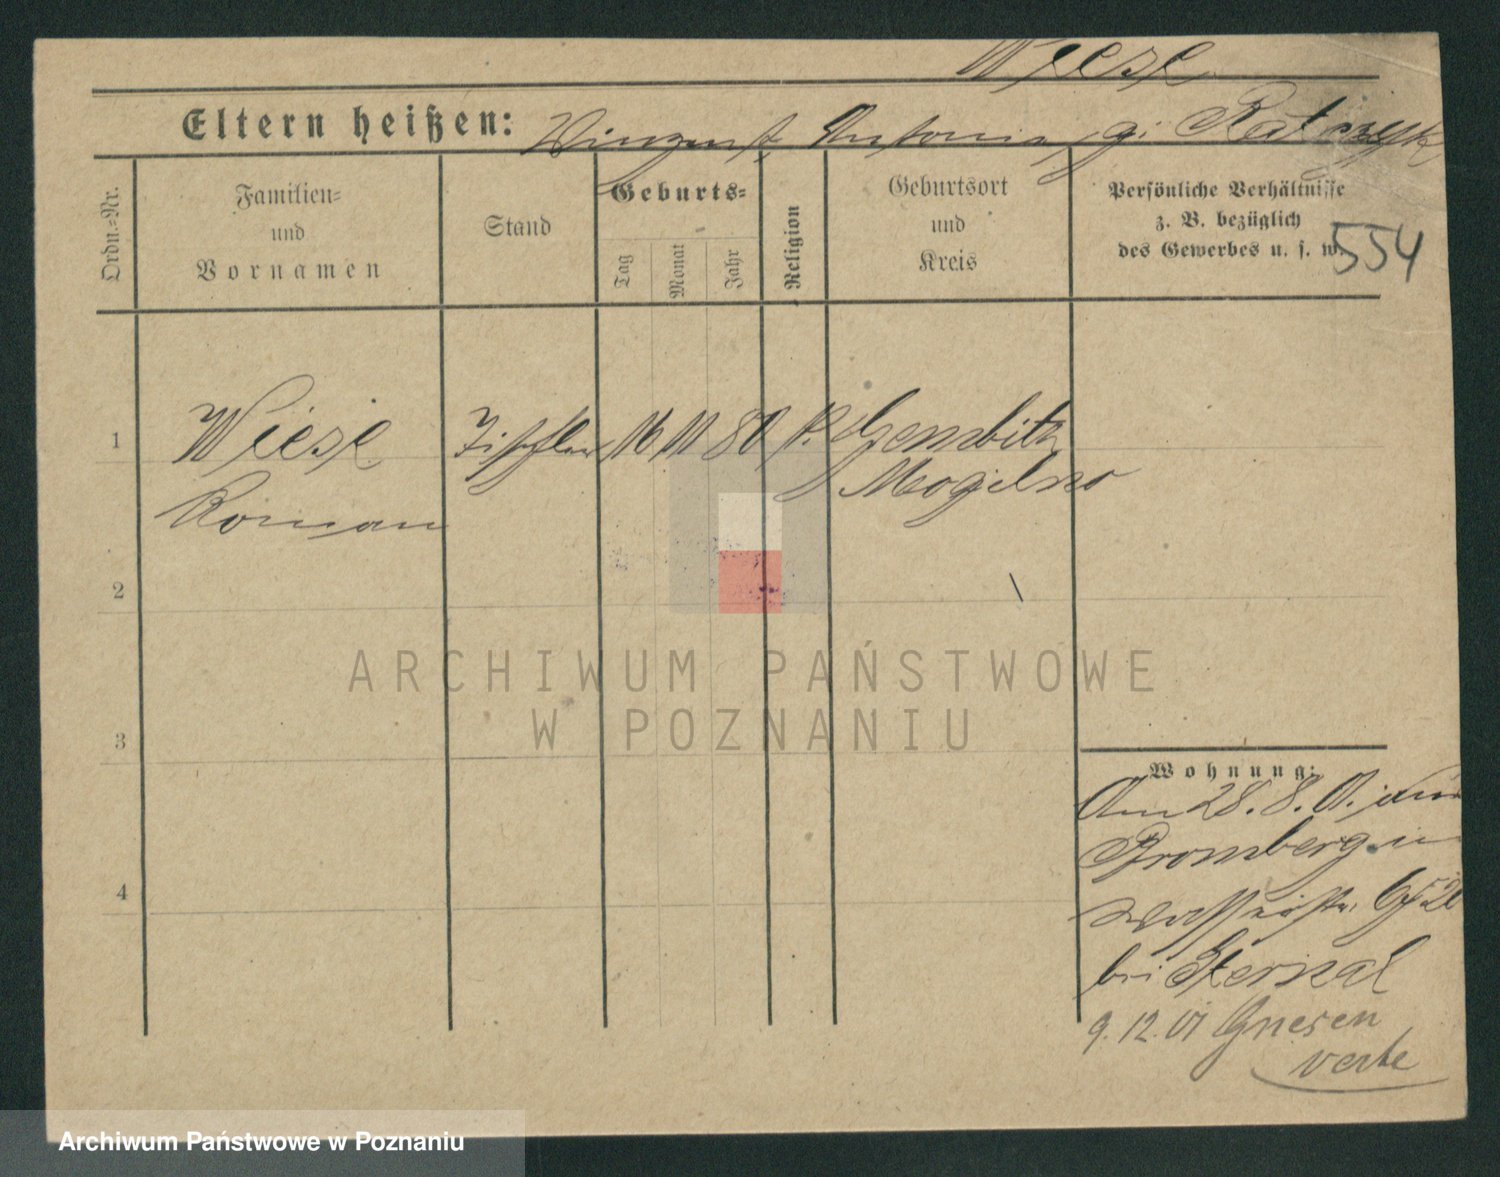 Wiese
Eltern heißen: Vinzent, Antonie g.
Ordn.=Nr.
Familien=
und
Vornamen
Stand
Geburts=
Tag
Monat
Jahr
Religion
Geburtsort
und
Kreis
Persönliche Verhältnisse
z. B. bezüglich
des Gewerbes u. s. w.
554
1
Wiese Tischler 16 11 80 k. Gembitz
Roman Mogilno
2
3
4
Wohnung:
Am 28.8.01. von
Bromberg in
bei
9.12.01 Gnesen
verte
ARCHIWUM PAŃSTWOWE
W POZNANIU
Archiwum Państwowe w Poznaniu